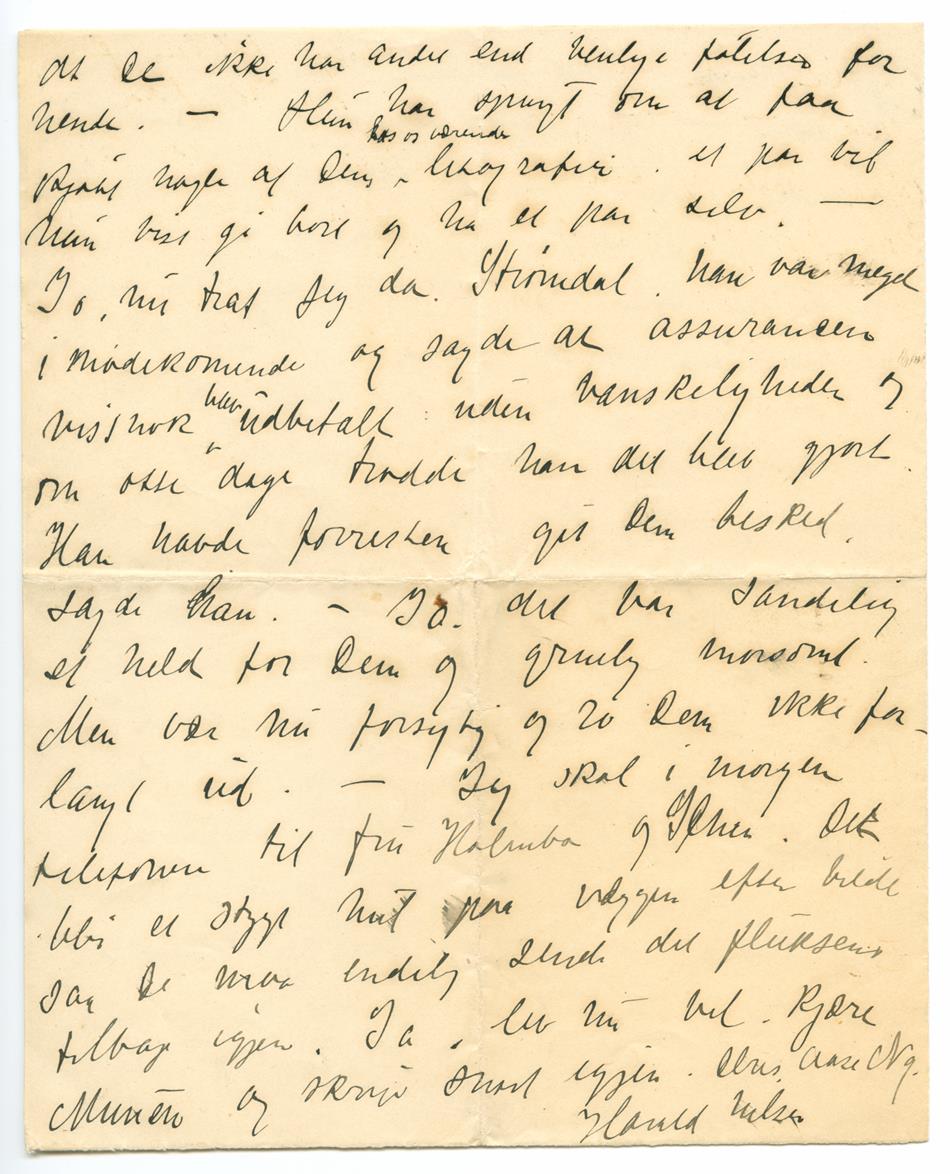 at De ikke har andet end venlige følelser for
hende. — Hun har spurgt om at faa
hos os værende
kjøbt nogle af Deres litografier. et par vil
hun vist gi bort og ha et par selv. —
Jo, nu traf jeg da Strømdal, han var meget
imødekommende og sagde at assurancen
vistnok blev udbetalt uden vanskeligheder og
om otte dage trodde han det blev gjort.
Han havde forresten git Dem besked,
sagde han. — Ja. det var sandelig
et held for Dem og gruelig morsomt.
Men vær nu forsigtig og ro Dem ikke for-
langt ud. — Jeg skal i morgen
telefonere til fru Holmboe og. Det
blir et stygt hul paa væggen efter billedet
saa De maa endelig sende det fluksens
tilbage igjen. Ja, lev nu vel. Kjære
Munch og skriv snart igjen. Deres Aase Ng.
Harald Nilsen